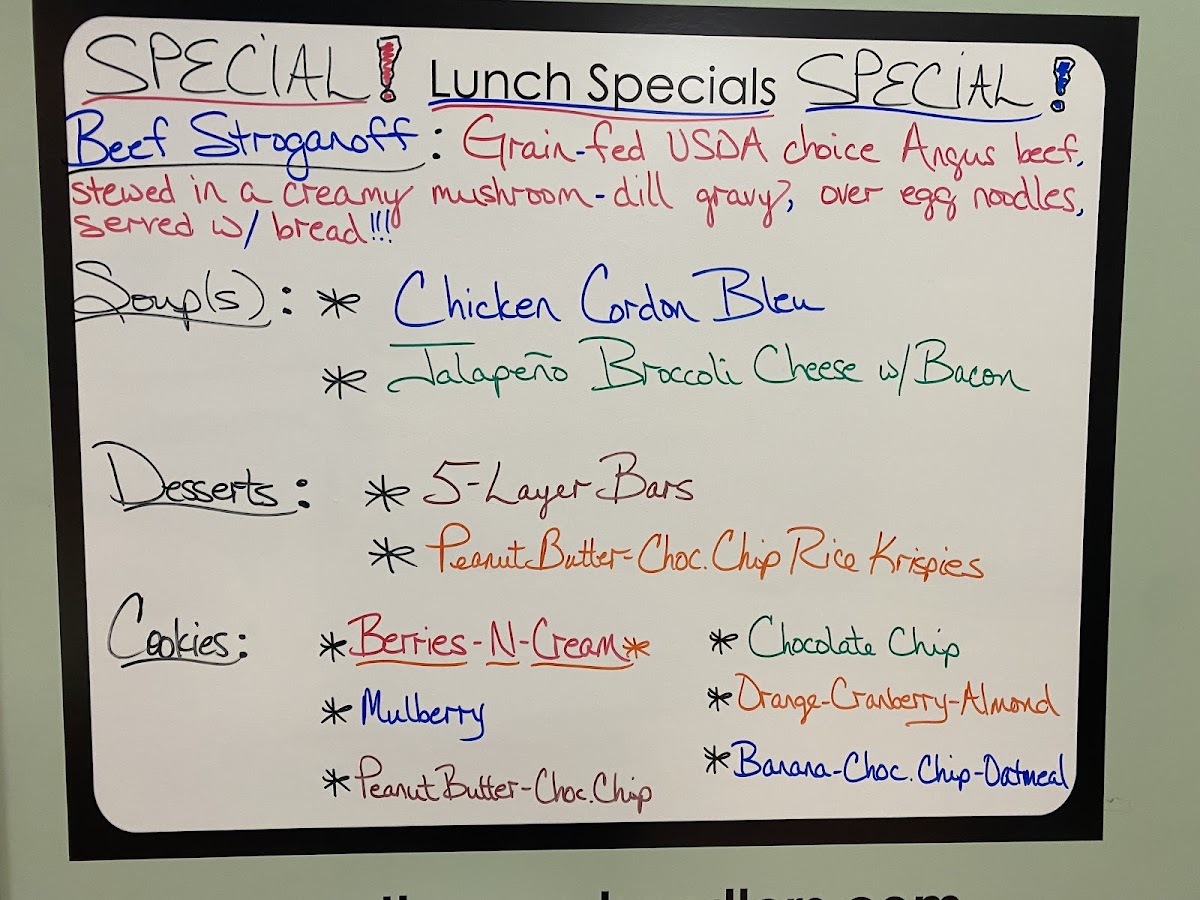 SPECIAL! Lunch Specials SPECIAL!
Beef Stroganoff: Grain-fed USDA choice Angus beef,
stewed in a creamy mushroom-dill gravy, over egg noodles,
served w/ bread!!!
Soup(s): * Chicken Cordon Bleu
* Jalapeño Broccoli Cheese w/Bacon
Desserts: * 5-Layer Bars
* Peanut Butter-Choc. Chip Rice Krispies
Cookies: *Berries-N-Cream* * Chocolate Chip
* Mulberry * Orange-Cranberry-Almond
* Peanut Butter-Choc. Chip * Banana-Choc. Chip-Oatmeal